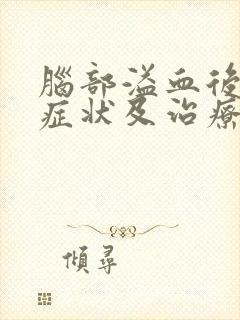 腦部溢血後
症状及治療
傾尋